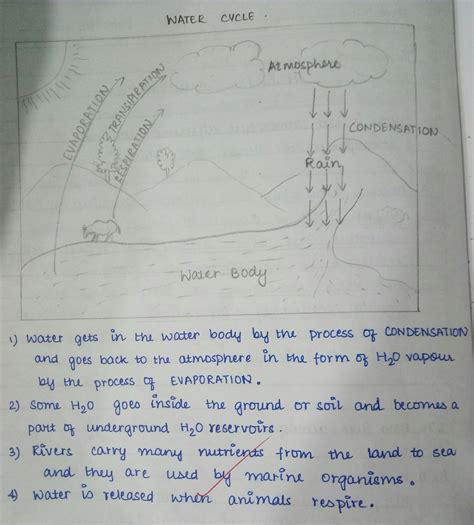 WATER CYCLE.
Atmosphere
EVAPORATION
TRANSPIRATION
RESPIRATION
CONDENSATION
Rain
Water Body
1) Water gets in the water body by the process of CONDENSATION
and goes back to the atmosphere in the form of H2O vapour
by the process of EVAPORATION.
2) Some H2O goes inside the ground or soil and becomes a
part of underground H2O reservoirs.
3) Rivers carry many nutrients from the land to sea
and they are used by marine organisms.
4) Water is released when animals respire.